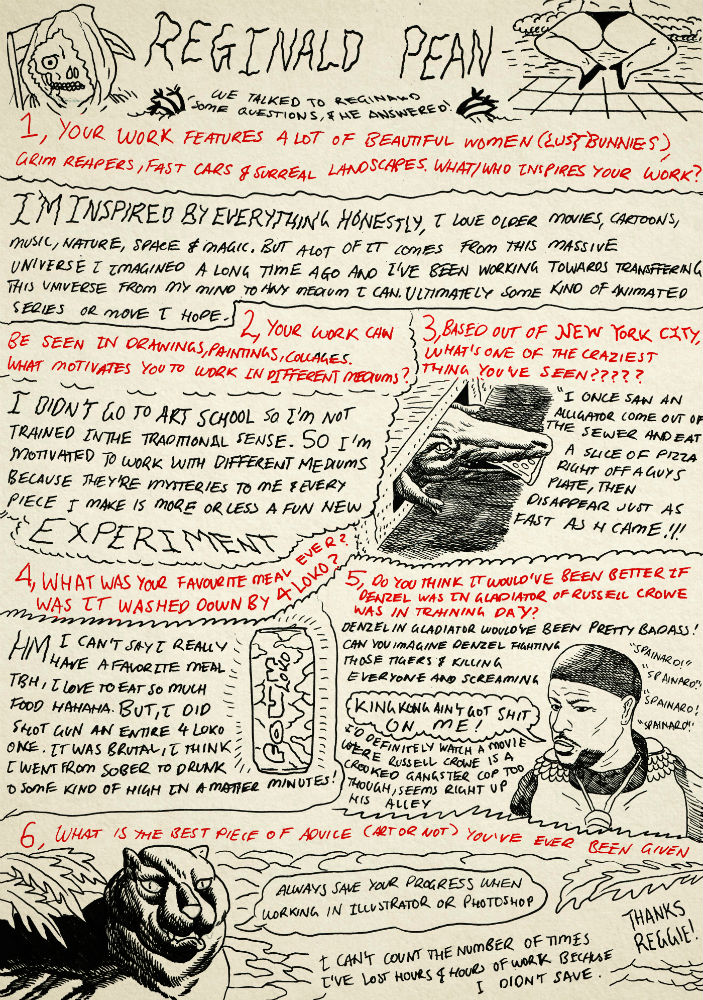 REGINALD PEAN
WE TALKED TO REGINALD
SOME QUESTIONS, & HE ANSWERED!
1, YOUR WORK FEATURES A LOT OF BEAUTIFUL WOMEN (LUST BUNNIES),
GRIM REAPERS, FAST CARS & SURREAL LANDSCAPES. WHAT/WHO INSPIRES YOUR WORK?
I'M INSPIRED BY EVERYTHING HONESTLY, I LOVE OLDER MOVIES, CARTOONS,
MUSIC, NATURE, SPACE & MAGIC. BUT A LOT OF IT COMES FROM THIS MASSIVE
UNIVERSE I IMAGINED A LONG TIME AGO AND I'VE BEEN WORKING TOWARDS TRANSFERRING
THIS UNIVERSE FROM MY MIND TO ANY MEDIUM I CAN. ULTIMATELY SOME KIND OF ANIMATED
SERIES OR MOVE I HOPE.
2, YOUR WORK CAN
BE SEEN IN DRAWINGS, PAINTINGS, COLLAGES.
WHAT MOTIVATES YOU TO WORK IN DIFFERENT MEDIUMS?
I DIDN'T GO TO ART SCHOOL SO I'M NOT
TRAINED IN THE TRADITIONAL SENSE. SO I'M
MOTIVATED TO WORK WITH DIFFERENT MEDIUMS
BECAUSE THEY'RE MYSTERIES TO ME & EVERY
PIECE I MAKE IS MORE OR LESS A FUN NEW
EXPERIMENT
3, BASED OUT OF NEW YORK CITY,
WHAT'S ONE OF THE CRAZIEST
THING YOU'VE SEEN?????
"I ONCE SAW AN
ALLIGATOR COME OUT OF
THE SEWER AND EAT
A SLICE OF PIZZA
RIGHT OFF A GUYS
PLATE, THEN
DISAPPEAR JUST AS
FAST AS H CAME!!!
4, WHAT WAS YOUR FAVOURITE MEAL EVER?
WAS IT WASHED DOWN BY 4 LOKO?
HM, I CAN'T SAY I REALLY
HAVE A FAVORITE MEAL
TBH, I LOVE TO EAT SO MUCH
FOOD HAHAHA. BUT, I DID
SHOT GUN AN ENTIRE 4 LOKO
ONE. IT WAS BRUTAL, I THINK
I WENT FROM SOBER TO DRUNK
O SOME KIND OF HIGH IN A MATTER MINUTES!
FOUR
LOKO
5, DO YOU THINK IT WOULD'VE BEEN BETTER IF
DENZEL WAS IN GLADIATOR OF RUSSELL CROWE
WAS IN TRAINING DAY?
DENZEL IN GLADIATOR WOULD'VE BEEN PRETTY BADASS!
CAN YOU IMAGINE DENZEL FIGHTING
THOSE TIGERS & KILLING
EVERYONE AND SCREAMING
"SPAINARD!"
"SPAINARD"
"SPAINARD!
"SPAINARD!"
KING KONG AIN'T GOT SHIT
ON ME!
I'D DEFINITELY WATCH A MOVIE
WERE RUSSELL CROWE IS A
CROOKED GANGSTER COP TOO
THOUGH, SEEMS RIGHT UP
HIS ALLEY
6, WHAT IS THE BEST PIECE OF ADVICE (ART OR NOT) YOU'VE EVER BEEN GIVEN
ALWAYS SAVE YOUR PROGRESS WHEN
WORKING IN ILLUSTRATOR OR PHOTOSHOP
I CAN'T COUNT THE NUMBER OF TIMES
I'VE LOST HOURS & HOURS OF WORK BECAUSE
I DIDN'T SAVE.
THANKS
REGGIE!